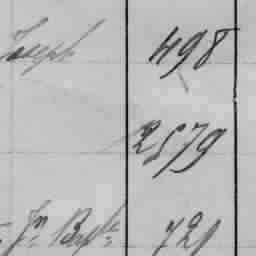 Joseph 498
2579
Jn Bapte 721